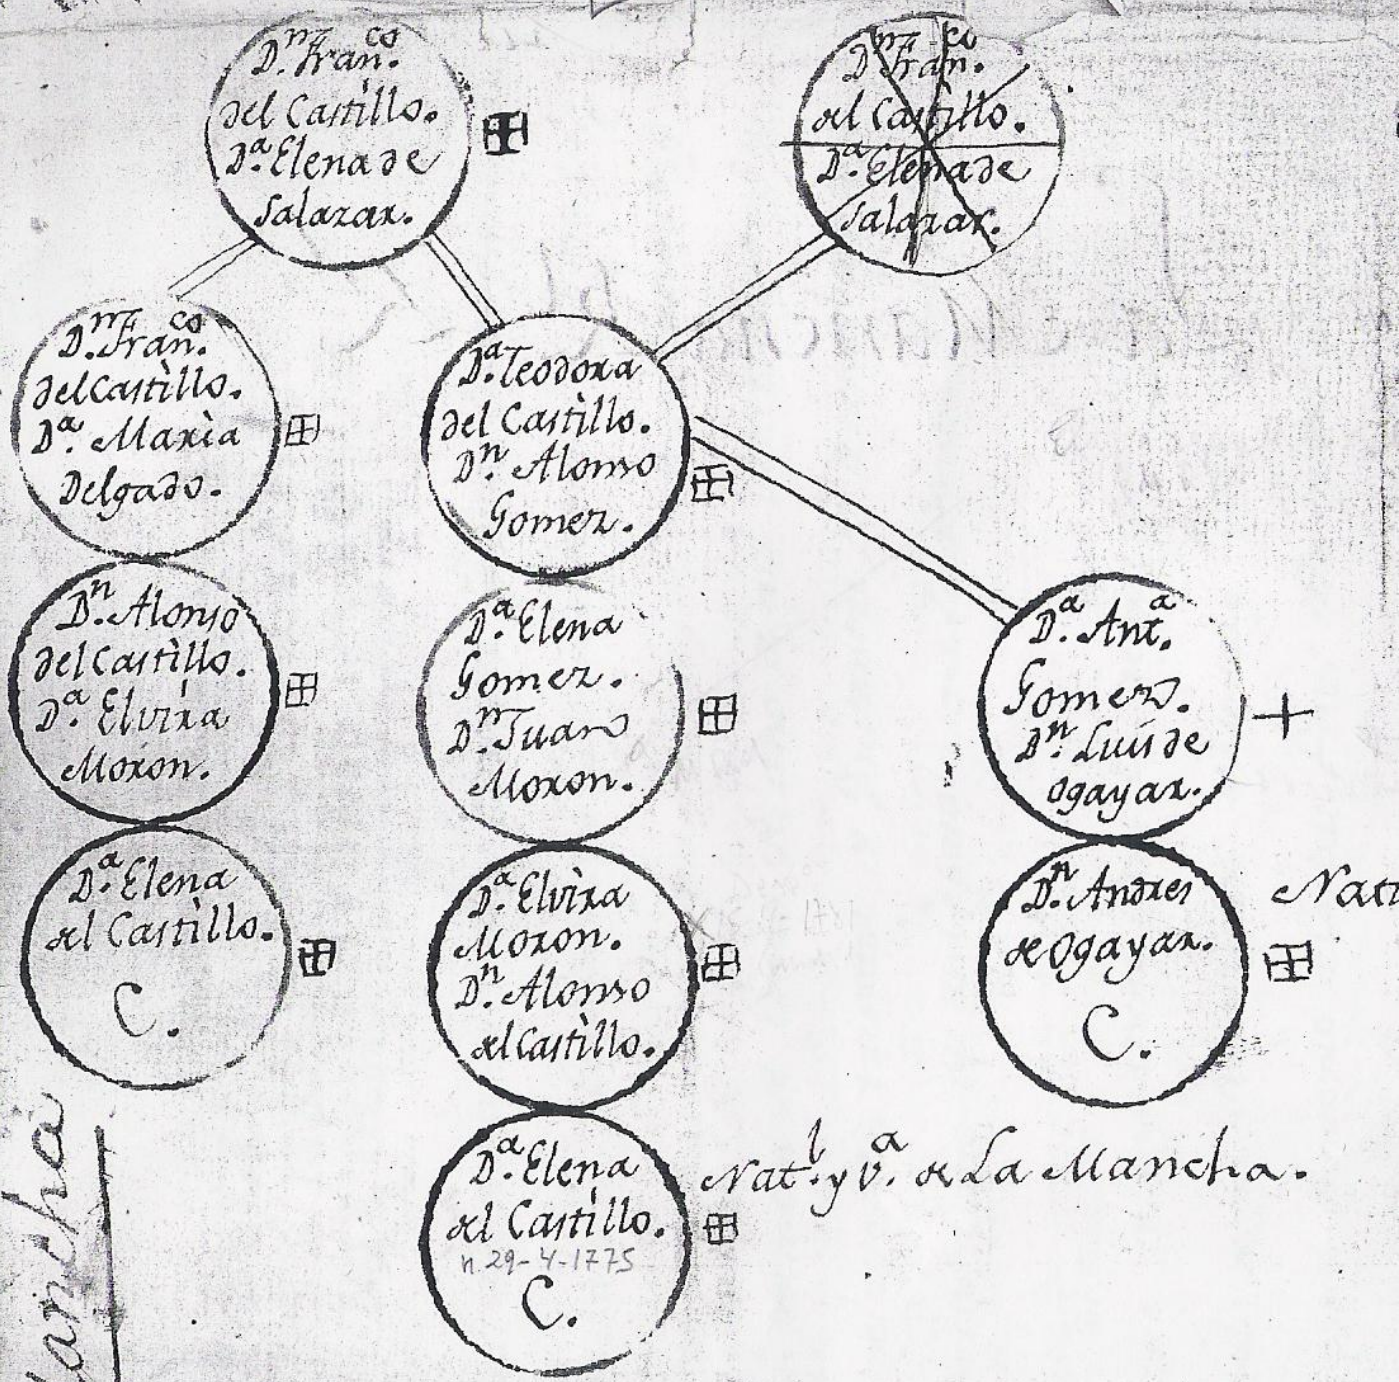 Dⁿ. Fran.ᶜᵒ
del Castillo.
Dª. Elena de
Salazar.
Dⁿ. Fran.ᶜᵒ
del Castillo.
Dª. Elena de
Salazar.
Dⁿ. Fran.ᶜᵒ
del Castìllo.
Dª. Marìa
Delgado.
Dª. Teodora
del Castìllo.
Dⁿ. Alonso
Gomez.
Dⁿ. Alonso
del Castìllo.
Dª. Elvira
Moron.
Dª. Elena
Gomez.
Dⁿ. Juan
Moron.
Dª. Ant.ª
Gomez.
Dⁿ. Luis de
Ogayar.
Dª. Elena
del Castìllo.
C.
Dª. Elvìra
Moron.
Dⁿ. Alonso
del Castìllo.
Dⁿ. Andres
de Ogayar.
C.
Dª. Elena
del Castìllo.
n. 29-4-1775
C.
Nat.ˡ y v.ª de La Mancha.